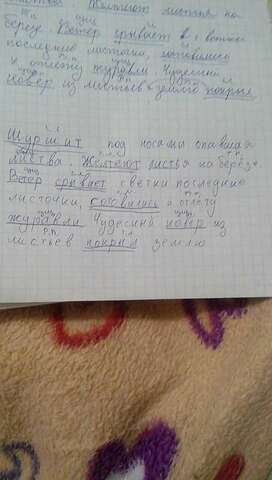 Желтеют листья на
берёзе. Ветер срывает с веток
последние листочки,
к отлёту журавли. Чудесный
ковёр из листьев землю покрыл
Шуршит под ногами опавшая
листва. Желтеют листья на берёзе.
Ветер срывает с ветки последнию
листочки, готовились к отлёту
журавли Чудесный ковер из
листьев покрыл землю